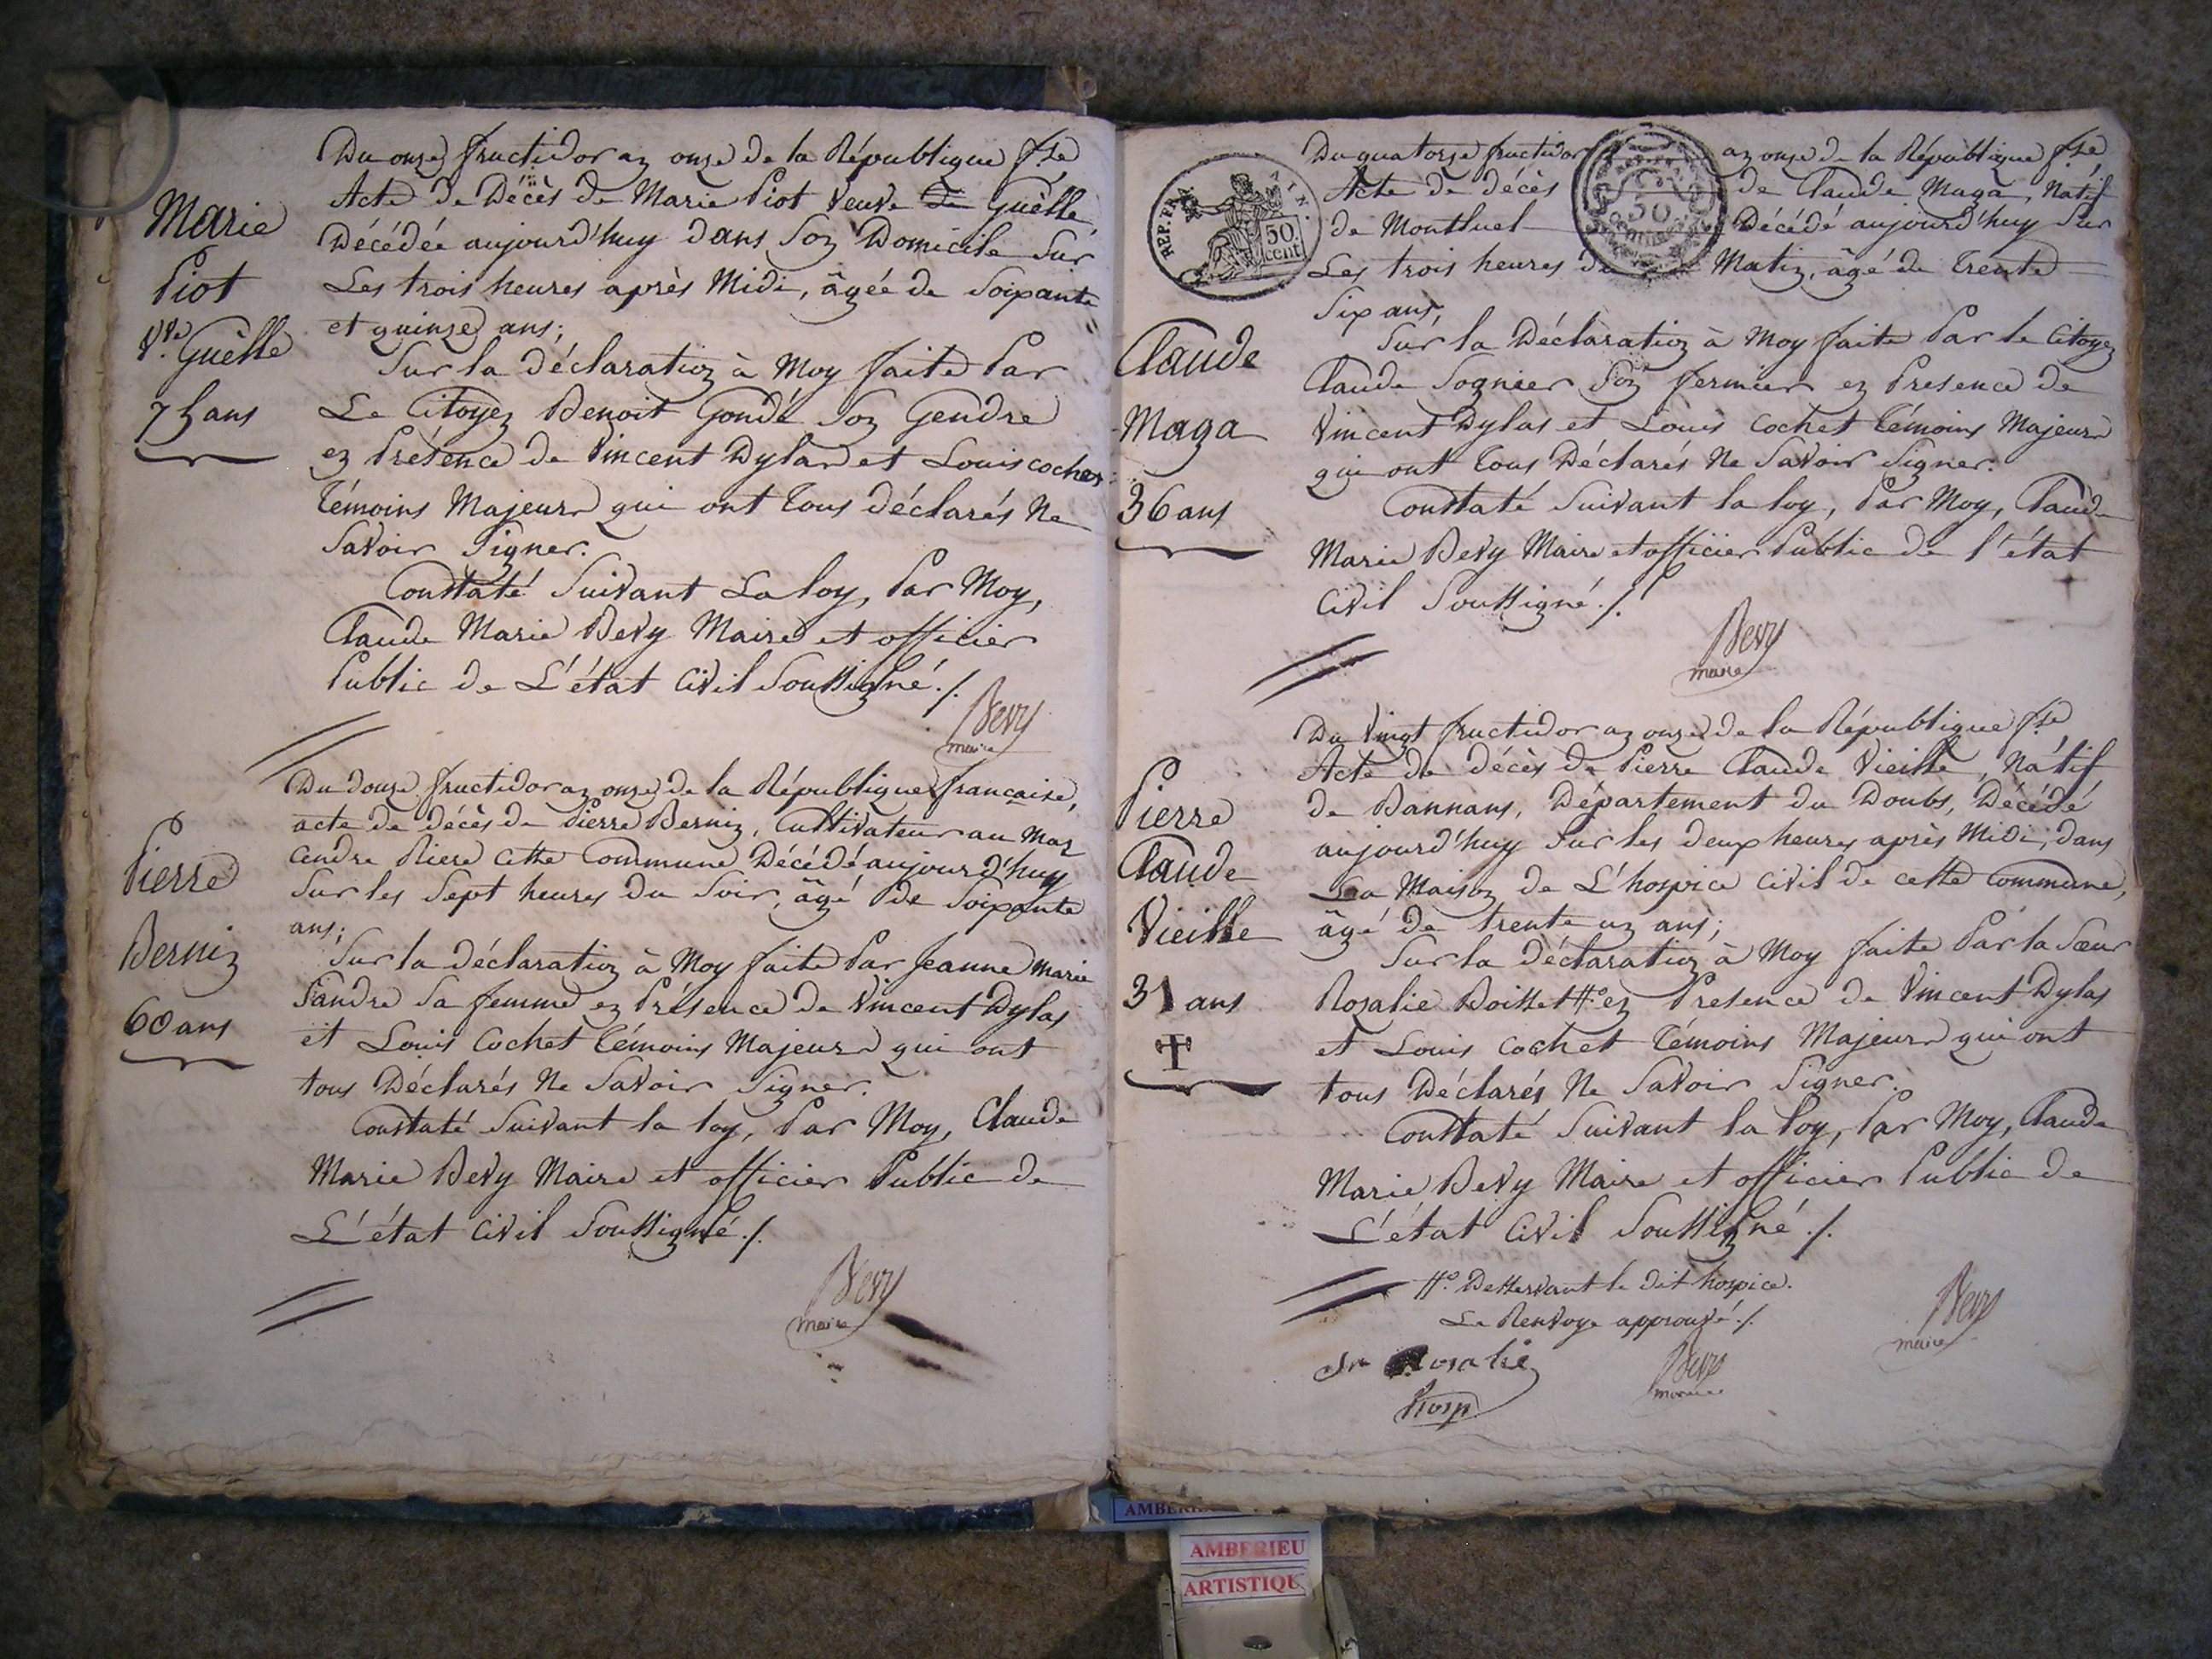 Marie
Piot
Vve. Guèlle
75 ans
Du onze fructidor an onze de la République fse
Acte de Décès de Marie Piot Veuve de Guèlle
Décédée aujourd'huy dans Son Domicile Sur
Les trois heures après Midi, âgée de Soixante
et quinze ans;
Sur la déclaration à Moy faite Par
Le Citoyen Benoit Gondé Son Gendre
en Présence de Vincent Dylas et Louis cochet
Témoins Majeurs qui ont tous déclarés Ne
Savoir Signer.
Constaté Suivant La loy, Par Moy,
Claude Marie Bevy Maire et officier
Public de L'état Civil Soussigné ./.
Bevy
maire
Pierre
Bernin
60 ans
Du douze fructidor an onze de la République francaise,
acte de décès de Pierre Bernin, Cultivateur au Mas
Cendre Riere cette Commune Décédé aujourd'huy
Sur les Sept heures du Soir, âgé de Soixante
ans;
Sur la déclaration à Moy faite Par Jeanne Marie
Sandre Sa femme en Présence de Vincent Dylas
et Louis Cochet Témoins Majeurs qui ont
tous Déclarés Ne Savoir Signer.
Constaté Suivant la loy, Par Moy, Claude
Marie Bevy Maire et officier Public de
L'état Civil Soussigné ./.
Bevy
maire
REP. FRA.
50
cent
50
Claude
Maga
36 ans
Du quatorze fructidor an onze de la République fse
Acte de décès de Claude Maga, Natif
de Montluel Décédé aujourd'huy Sur
Les trois heures du Matin, âgé de trente
Six ans,
Sur la Déclaration à Moy faite Par le Citoyen
Claude Sognier Son fermier en Presence de
Vincent Dylas et Louis Cochet Témoins Majeurs
qui ont tous Déclarés Ne Savoir Signer.
Constaté Suivant la loy, Par Moy, Claude
Marie Bevy Maire et officier Public de l'état
Civil Soussigné ./.
Bevy
maire
Pierre
Claude
Vieille
31 ans
Du Vingt fructidor an onze de la République fse,
Acte de décès de Pierre Claude Vieille, Natif
de Bannans, Département du Doubs, Décédé
aujourd'huy Sur les deux heures après Midi, dans
La Maison de L'hospice Civil de cette Commune,
âgé de trente un ans;
Sur la déclaration à Moy faite Par la Sœur
Rosalie Boisset #o en Presence de Vincent Dylas
et Louis Cochet Témoins Majeurs qui ont
tous Déclarés Ne Savoir Signer.
Constaté Suivant la loy, Par Moy, Claude
Marie Bevy Maire et officier Public de
L'état Civil Soussigné ./.
#o Desservant le dit hospice.
Le Renvoye approuvé ./.
Bevy
maire
Sr Rosalie
hosp
Bevy
maire
AMBERIEU
ARTISTIQU